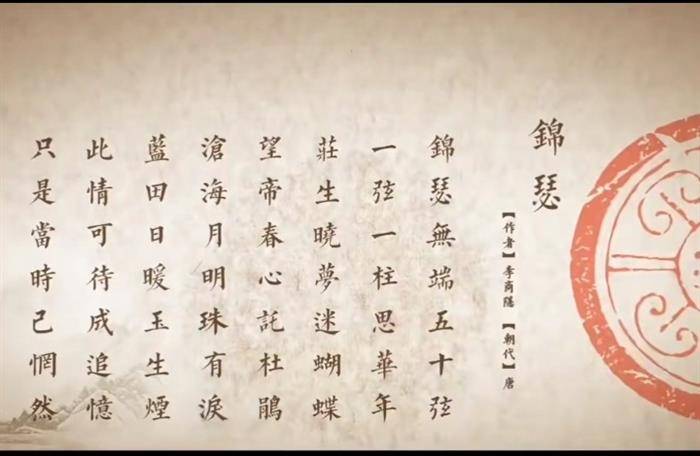 錦瑟
【作者】李商隱 【朝代】唐
錦瑟無端五十弦
一弦一柱思華年
莊生曉夢迷蝴蝶
望帝春心託杜鵑
滄海月明珠有淚
藍田日暖玉生煙
此情可待成追憶
只是當時已惘然